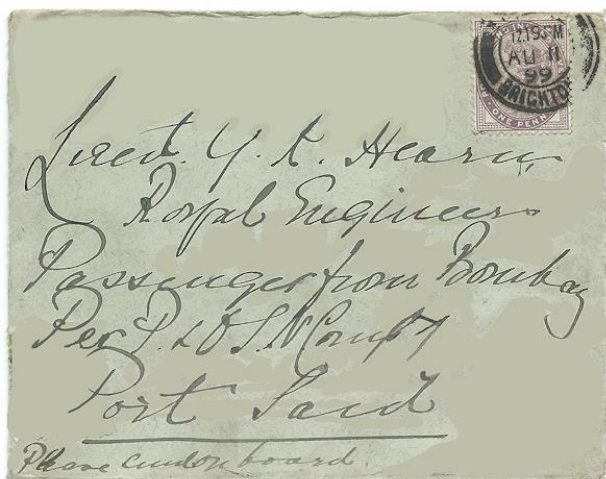 12.15 PM
AU 11
99
BRIGHTON
ONE PENNY
Lieut. G. R. Hearn
Royal Engineers
Passenger from Bombay
Per P. & O S. N Compy
Port Said
Please send on board.